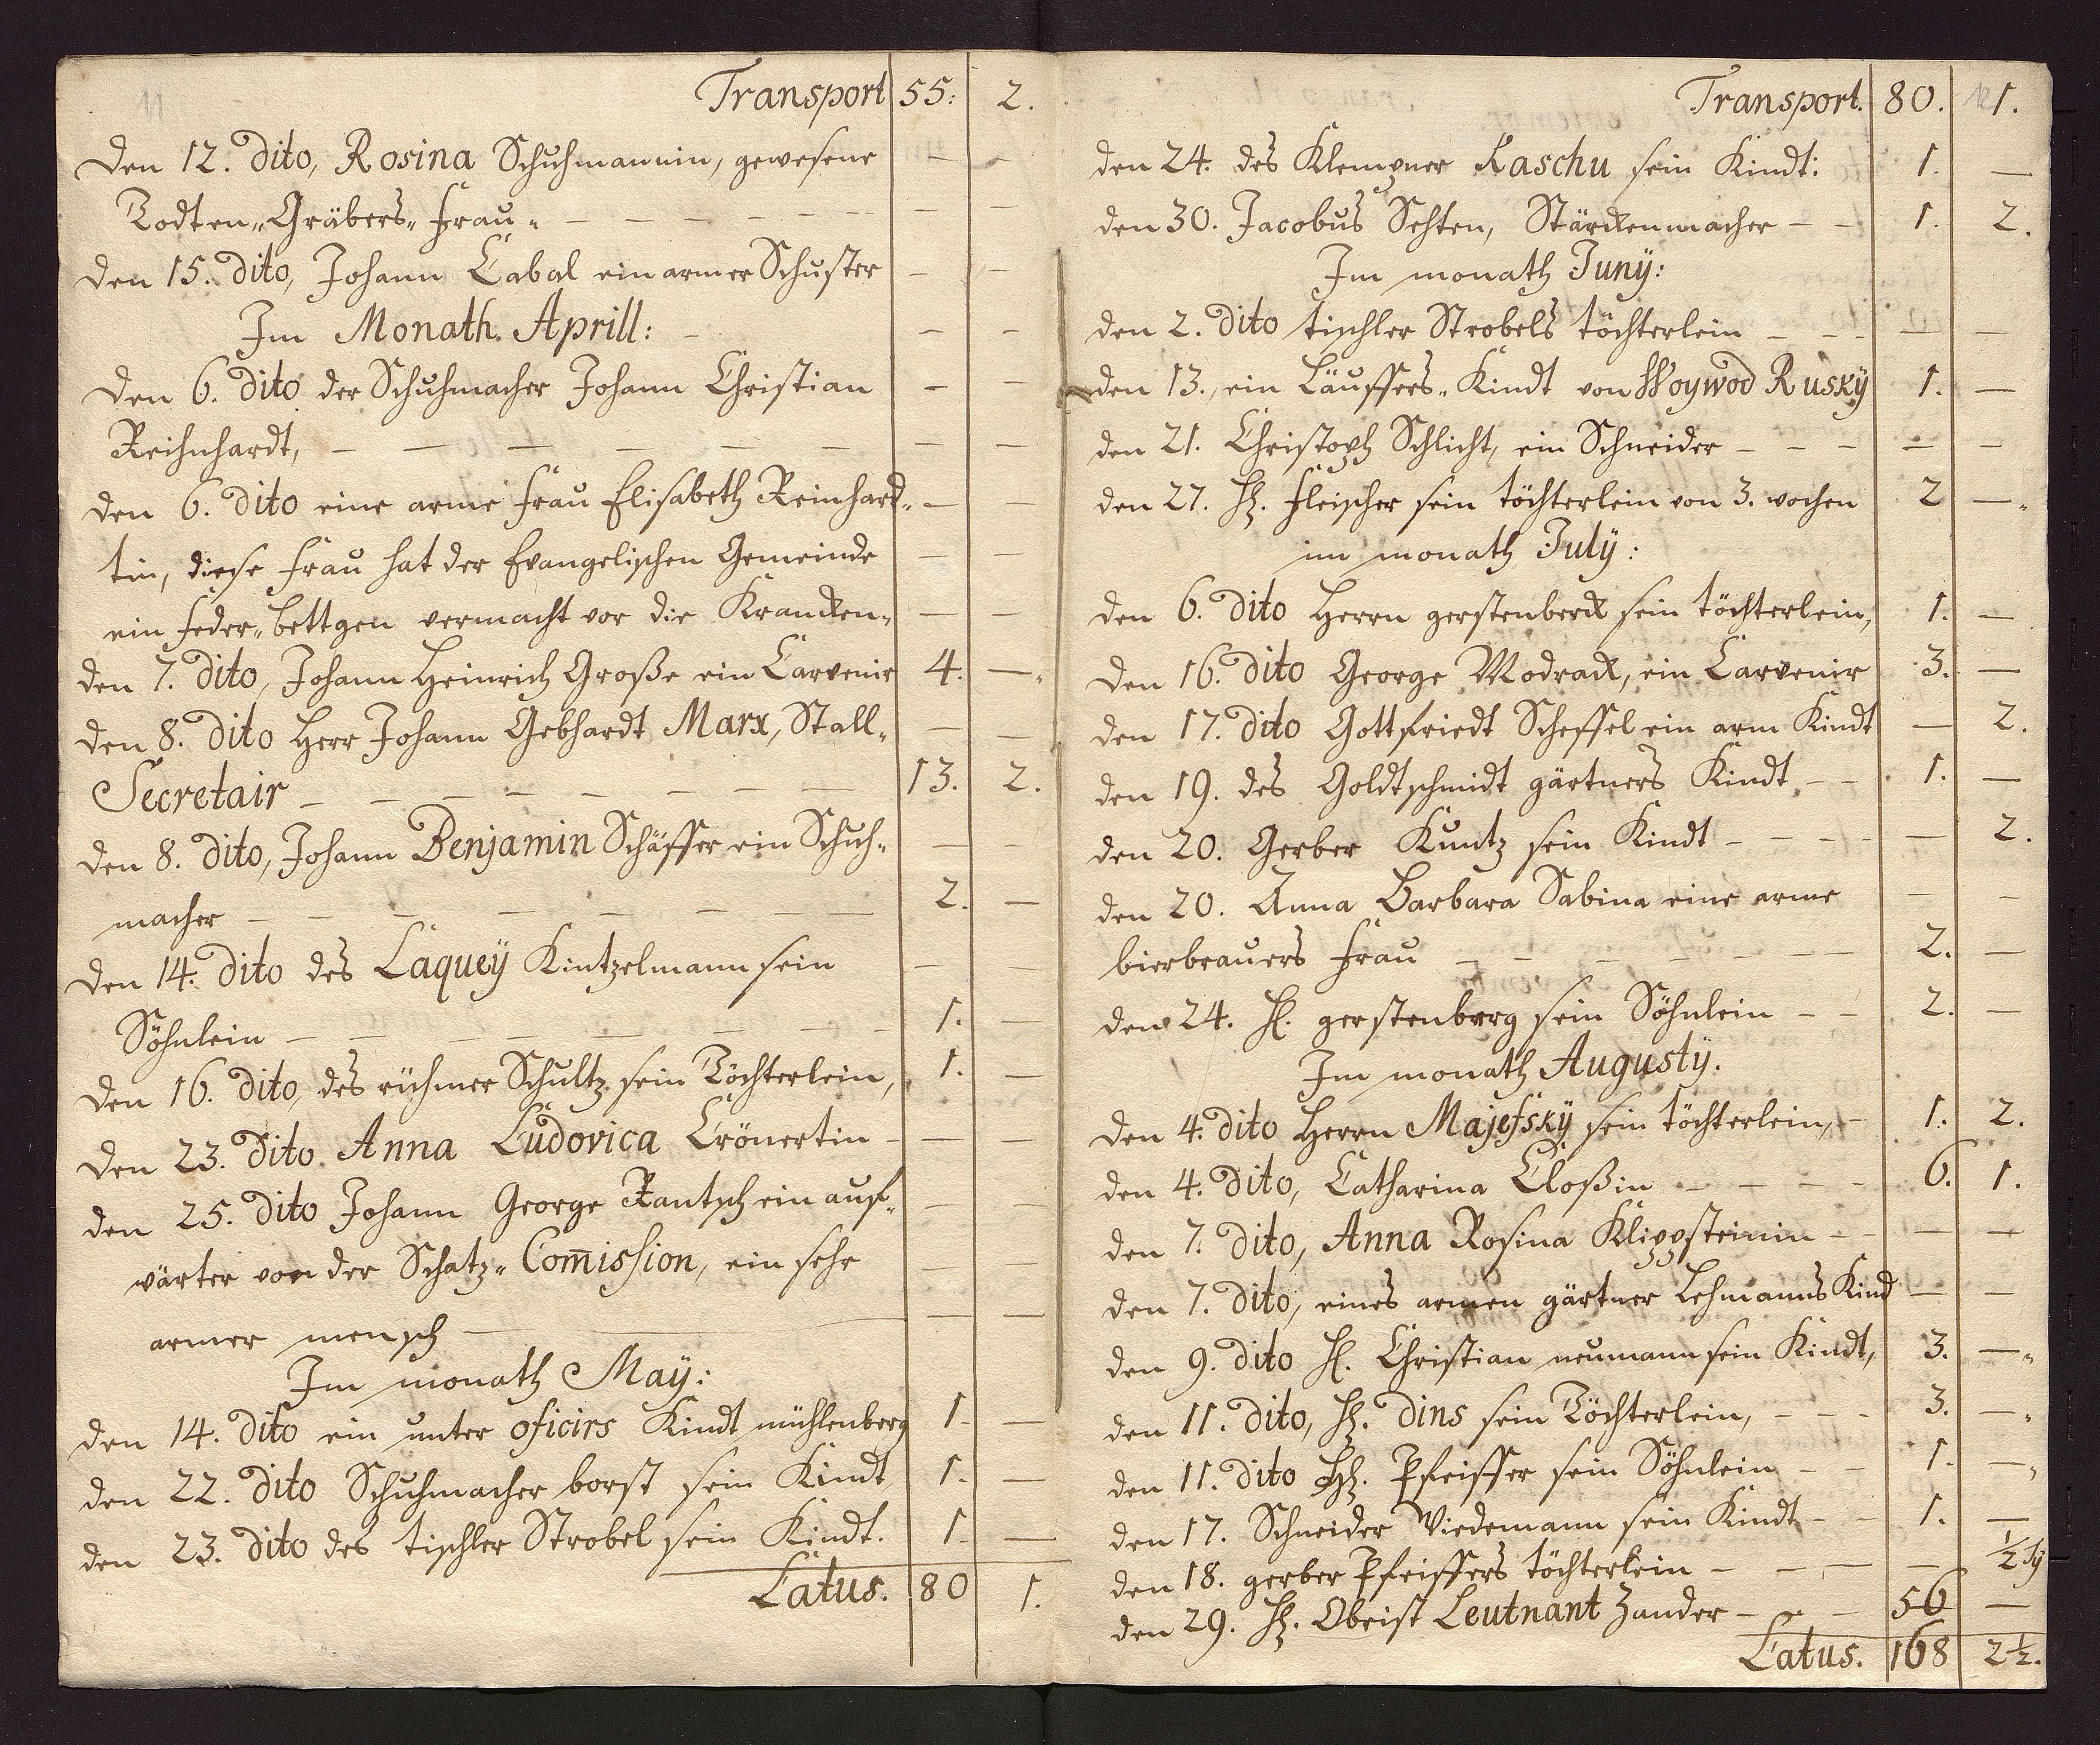 11
Transport 55: 2.
Den 12. Dito, Rosina Schuhmannin, gewesene — —
Todten„Gräbers„ frau„ — —
Den 15. Dito, Johann Cabal ein armer Schuster — —
Im Monath. Aprill: — —
Den 6. Dito der Schuhmacher Johann Christian — —
Reihnhardt, — —
den 6. Dito eine arme frau Elisabeth Reinhard„ — —
tin, diese frau hat der Evangelischen Gemeinde — —
ein feder„bettgen vermacht vor die Krancken„ — —
den 7. Dito, Johann Heinrich Große ein Carvenir 4. —„
den 8. Dito Herr Johann Gebhardt Marx, Stall„ — —
Secretair — 13. 2.
den 8. Dito, Johann Benjamin Schäffer ein Schuh„ — —
macher — 2. —
den 14. Dito des Laqueÿ Kintzelmann sein — —
Söhnlein — 1. —
den 16. Dito, des Schultz sein Töchterlein, 1. —
den 23. Dito Anna Ludovica Crönertin — —
den 25. Dito Johann George Rantsch ein auf„ — —
wärter von der Schatz„ Com̄ission, ein sehr — —
armer mensch — —
Im monath Maÿ:
den 14. Dito ein unter oficirs Kindt mühlenberg 1. —
den 22. Dito Schuhmacher borst sein Kindt 1. —
den 23. Dito des tischler Strobel sein Kindt. 1. —
Latus. 80 1.
12
Transport. 80. 1.
den 24. des Klempner Raschu sein Kindt: 1. —
den 30. Jacobus Sehten, Stärckenmacher — 1. 2.
Im monath Junÿ:
den 2. Dito tischler Strobels töchterlein — —
den 13., ein Läuffers„ Kindt von Woywod Ruskÿ 1. —
den 21. Christoph Schlicht, ein Schneider — —
den 27. H. fleischer sein töchterlein von 3. wochen 2 —„
im monath Julÿ:
den 6. Dito Herrn gerstenberck sein töchterlein, 1. —
den 16. Dito George Modrack, ein Carvenir 3. —
den 17. Dito Gottfriedt Scheffel ein arm Kindt — 2.
den 19. des Goldtschmidt gärtners Kindt — 1. —
den 20. Gerber Kuntz sein Kindt — — 2.
den 20. Anna Barbara Sabina eine arme — —
bierbrauers frau — 2. —
den 24. H. gerstenberg sein Söhnlein — 2. —
Im monath Augustÿ.
den 4. Dito Herrn Majefskÿ sein töchterlein, — 1. 2.
den 4. Dito, Catharina Cloßin — 6. 1.
den 7. Dito, Anna Rosina Klippsteinin — —
den 7. Dito, eines armen gärtner Lehmanns Kind — —
den 9. Dito H. Christian neumann sein Kindt, 3. —„
den 11. Dito, H. Dins sein Töchterlein, — 3. —„
den 11. Dito H. Pfeiffer sein Söhnlein — 1. —„
den 17. Schneider Viedemann sein Kindt — 1. —
den 18. gerber Pfeiffers töchterlein — — ½
den 29. H. Obrist Leutnant Zander — 56 —
Latus. 168 2½.